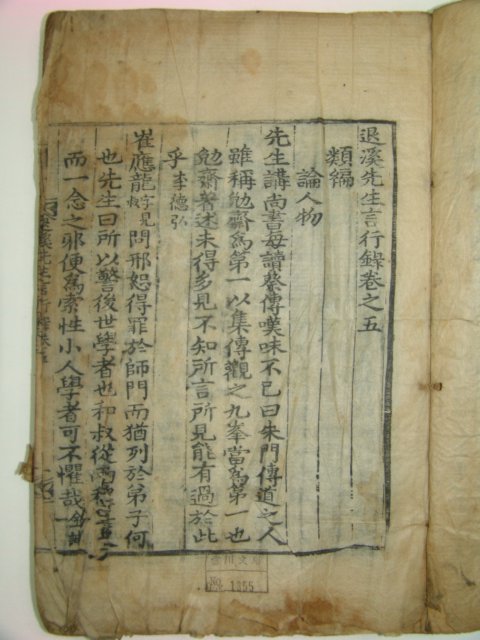 退溪先生言行錄卷之五
類編
論人物
先生講尚書每讀蔡傳嘆味不已曰朱門傳道之人
雖稱勉齋為第一以集傳觀之九峯當為第一也
勉齋著述未得多見不知所言所見能有過於此
乎李德弘
崔應龍字見叔問邢恕得罪於師門而猶列於弟子何
也先生曰所以警後世學者也和叔從
而一念之邪便為索性小人學者可不懼哉
退溪先生言行錄卷五
1355